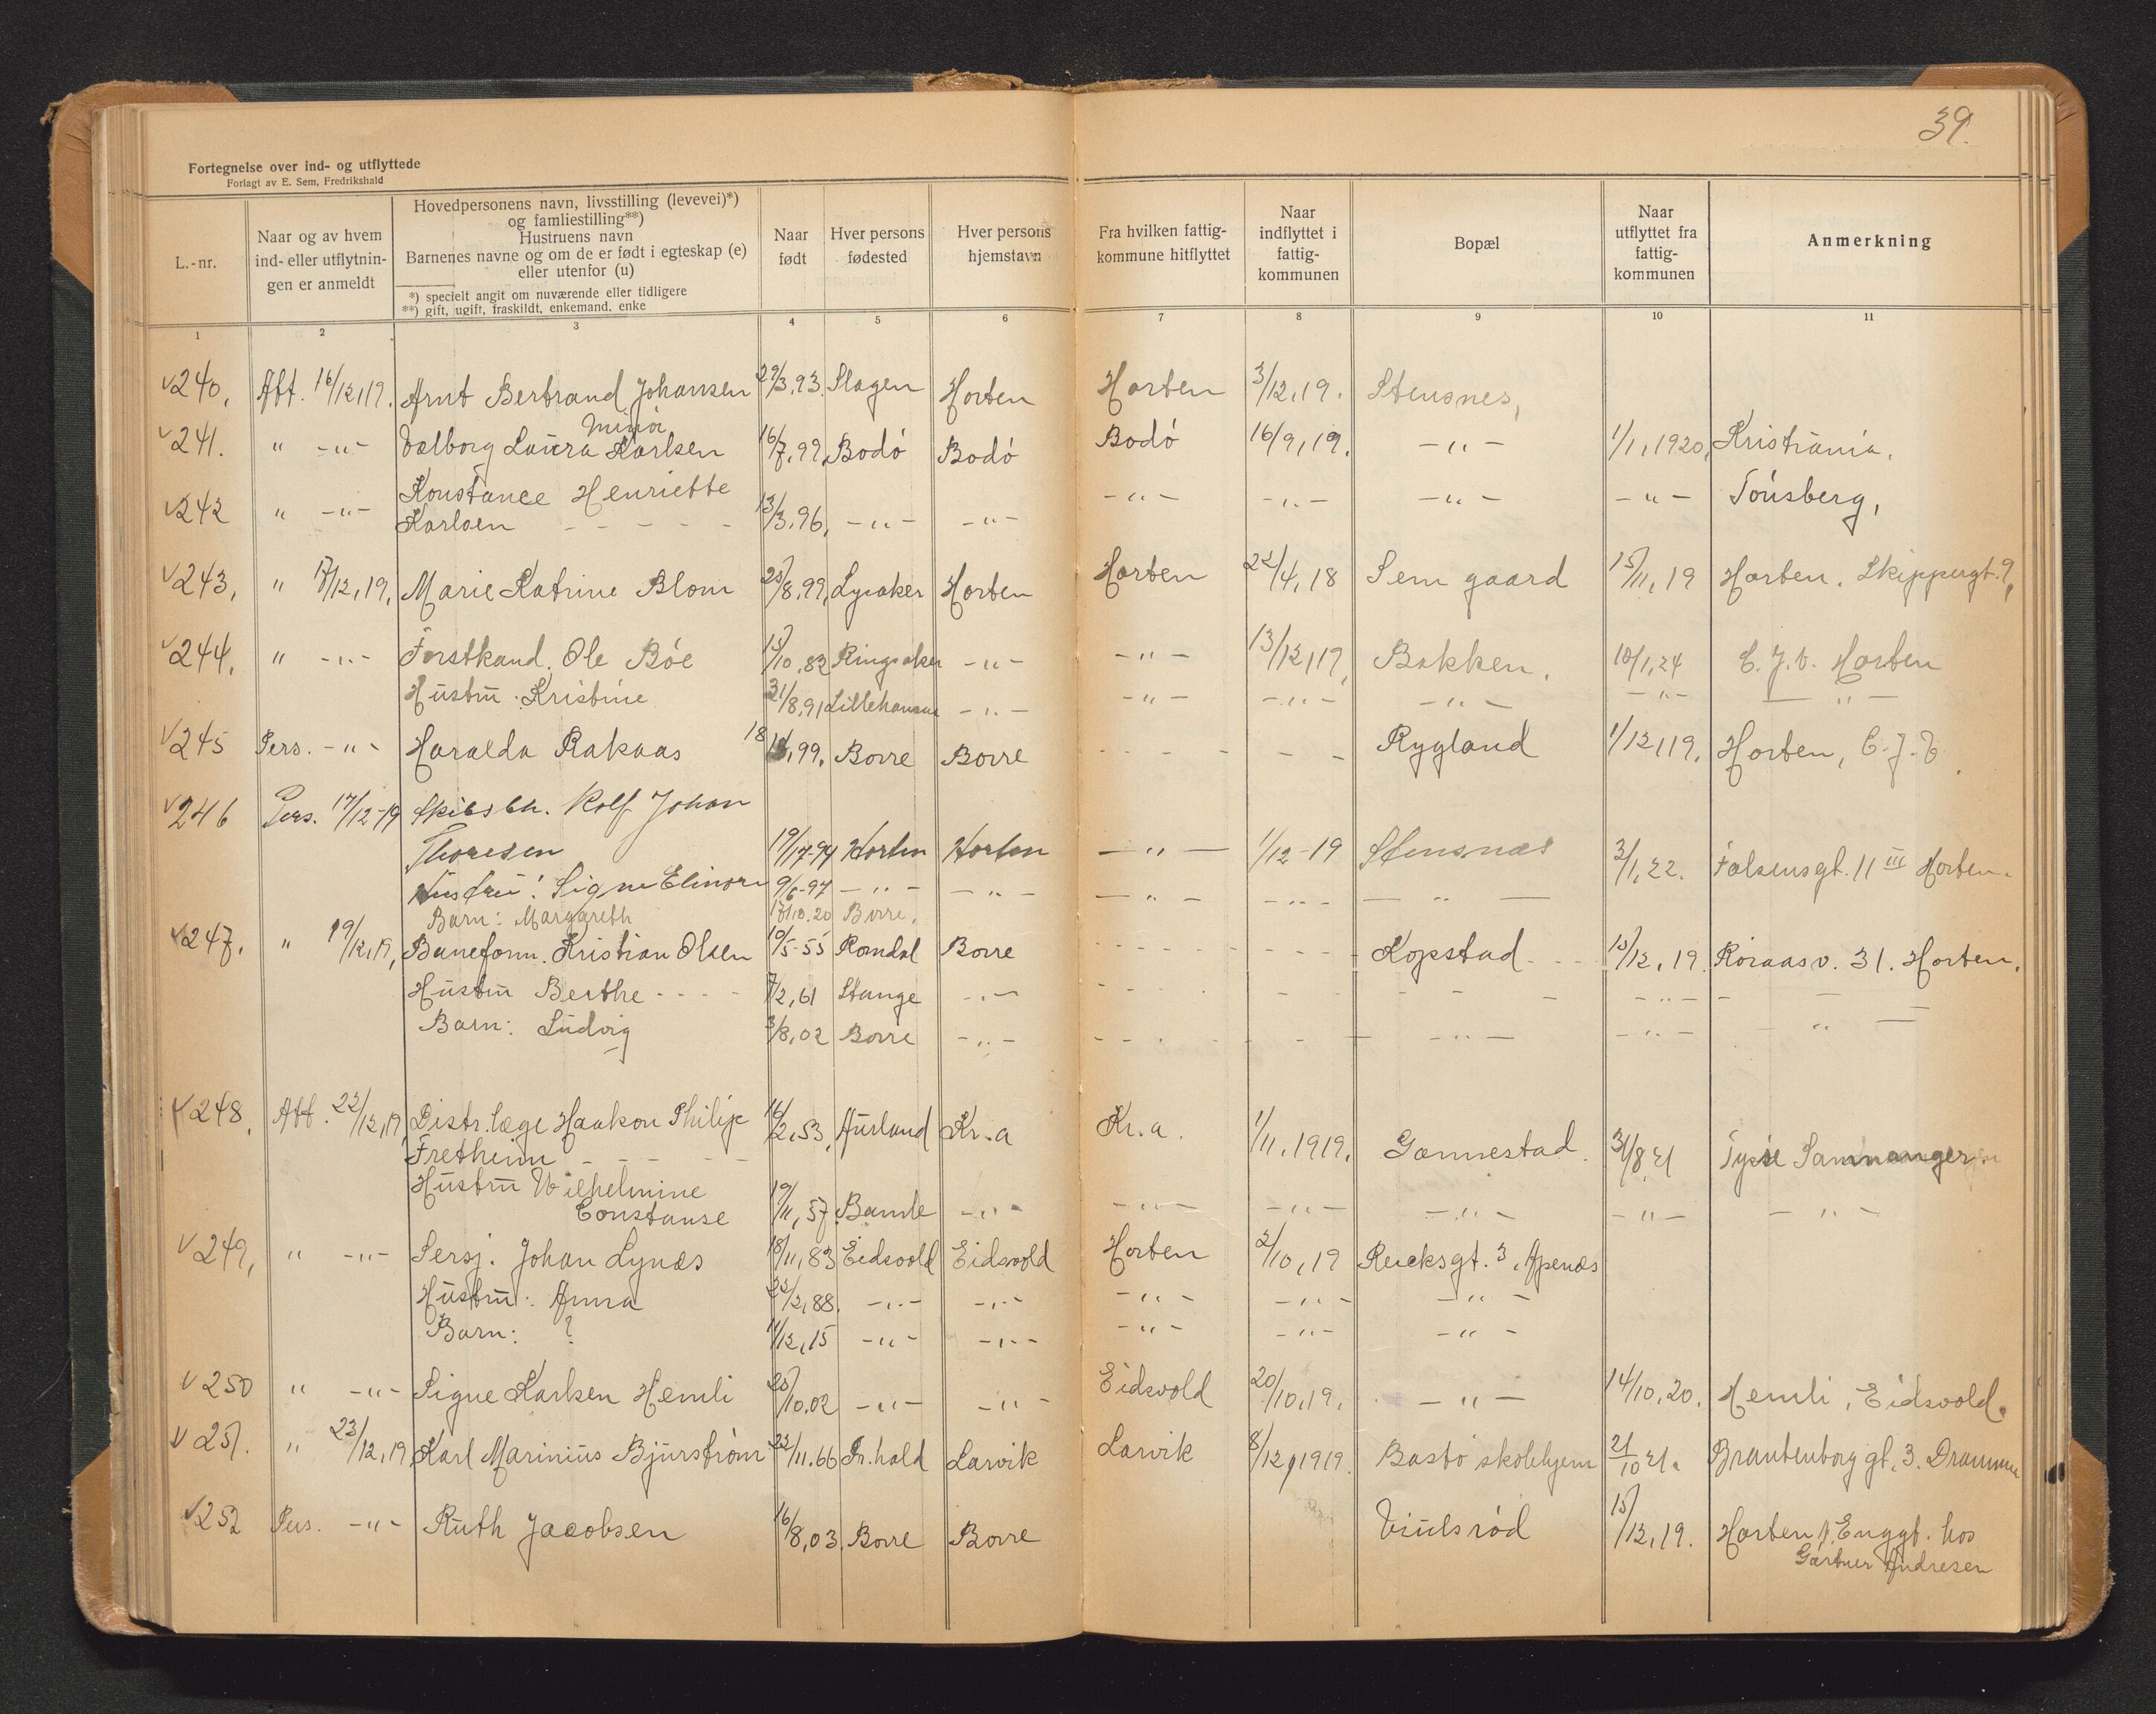 39.
Fortegnelse over ind- og utflyttede
Forlagt av E. Sem, Fredrikshald
L.-nr.
Naar og av hvem
ind- eller utflytnin-
gen er anmeldt
Hovedpersonens navn, livsstilling (levevei)*)
og famliestilling**)
Hustruens navn
Barnenes navne og om de er født i egteskap (e)
eller utenfor (u)
*) specielt angit om nuværende eller tidligere
**) gift, ugift, fraskildt, enkemand, enke
Naar
født
Hver persons
fødested
Hver persons
hjemstavn
Fra hvilken fattig-
kommune hitflyttet
Naar
indflyttet i
fattig-
kommunen
Bopæl
Naar
utflyttet fra
fattig-
kommunen
Anmerkning
1 2 3 4 5 6 7 8 9 10 11
240. Att. 16/12,19. Arnt Bertrand Johansen 29/3.93. Slagen Horten Horten 3/12,19. Stensnes,
241. " -"- Valborg Laura Karlsen 16/7,99 Bodó Bodó Bodó 16/9,19. -"- 1/1,1920, Kristiania.
242 " -"- Konstance Henriette -"- -"- -"- -"- Tónsberg,
Karlsen - - - - - 13/3.96, -"- -"-
243, " 17/12,19, Marie Katrine Blom 25/8.99, Lysaker Horten Horten 22/4,18 Sem gaard 15/11,19 Horten. Skippergt. 9,
244, " -"- Forstkand. Ole Bóe 15/10.82 Ringsaker -"- -"- 13/12,17, Bakken. 10/1,24 C.J.v. Horten
Hustru Kristine 31/8,91 Lillehammer -"- -"- -"- -"- -"- -"-
245 Pers. -"- Haralda Rakaas 99. Borre Borre - - - - - - Rygland 1/12,19. Horten, C.J.V.
246 Pers. 17/12-19 Skibsbn. Rolf Johan
Thoresen Horten Horten -"- 1/12-19 Stensnæs 3/1,22. Falsensgt. 11 III Horten.
Hustru: Signe Elinore 9/6-97 -"- -"- -"- -"- -"-
Barn: Margareth 20 Borre.
247. " 19/12,19, Baneform. Kristian Olsen 10/5-55 Romdal Borre - - - - - - Kopstad - - 15/12,19. Roraasv. 31. Horten.
Hustru Berthe - - - - 7/2,61 Stange -"- - - - -"- -
Barn: Ludvig 3/8,02 Borre -"- - - - -"- -"- -"-
248, Att. 22/12,19, Distr.læge Haakon Philip 16/2,53, Aurland Kr.a Kr.a. 1/11,1919. Gannestad. 31/8,21 Tysse Samnanger
Frethеim - - - - -
Hustru Wilhelmine
Constanse 19/11,57. Bamle -"- -"- -"- -"- -"- -"-
249, " -"- Sersj. Johan Lynæs 18/11,83 Eidsvold Eidsvold Horten 2/10,19 Reeksgt. 3, Apenæs
Hustru: Anna 22/2,88. -"- -"- -"- -"- -"-
Barn: ? 11/12,15 -"- -"- -"- -"- -"-
250 " -"- Signe Karlsen Hemli 25/10.02 -"- -"- Eidsvold 20/10,19, -"- 14/10,20. Hemli, Eidsvold.
251. " 23/12,19, Karl Marinius Bjurstróm 22/11.66 Fr.hald Larvik Larvik 8/12,1919. Bastó skolehjem 21/10 21. Brantenborg gt. 3. Drammen
252 Pers. -"- Ruth Jacobsen 16/8,03. Borre Borre Viulsród 15/12,19. Horten, N. Enggt. hos
Gartner Andresen